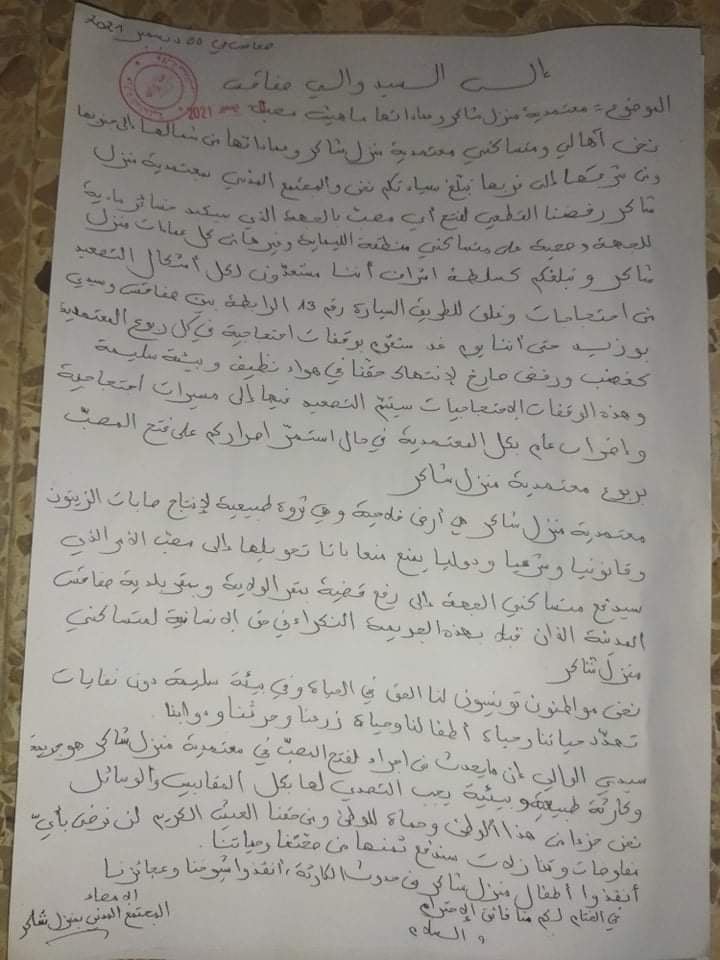 صفاقس في 00 ديسمبر 2021
إلى السيد والي صفاقس
الموضوع: معتمدية منزل شاكر وعماداتها ماهيش مصب
ديسمبر 2021
نحن أهالي ومتساكني معتمدية منزل شاكر وعماداتها من شمالها إلى جنوبها
ومن شرقها إلى غربها نبلغ سيادتكم نحن والمجتمع المدني بمعتمدية منزل
شاكر رفضنا القطعي لفتح أي مصب بالجهة الذي سيكبد خسائر مادية
للجهة وصحية على متساكني منطقة الليماية وغيرها من كل عمادات منزل
شاكر ونبلغكم كسلطة اشراف أننا مستعدون لكل أشكال التصعيد
من احتجاجات وغلق للطريق السيارة رقم 13 الرابطة بين صفاقس وسيدي
بوزيد حتى أننا يوم غد سنقوم بوقفات احتجاجية في كل ربوع المعتمدية
كغضب ورفض صارخ لإنتهاك حقنا في هواء نظيف وبيئة سليمة
وهذه الوقفات الاحتجاجيات سيتم التصعيد فيها إلى مسيرات احتجاجية
واضراب عام بكل المعتمدية في حال استمر اصراركم على فتح المصب
بربوع معتمدية منزل شاكر
معتمدية منزل شاكر هي أرض فلاحية وهي ثروة طبيعية لإنتاج صابات الزيتون
وقانونيا وشرعيا ودوليا يمنع منعا باتا تحويلها إلى مصب الأمر الذي
سيدفع متساكني الجهة إلى رفع قضية بمقر الولاية وبمقر بلدية صفاقس
المدينة اللذان قبلا بهذه الجريمة النكراء في حق الإنسانية لمتساكني
منزل شاكر
نحن مواطنون تونسيون لنا الحق في الحياة وفي بيئة سليمة دون نفايات
تهدد حياتنا وحياة أطفالنا وحياة زرعنا وحرثنا ودوابنا.
سيدي الوالي إن ما يحدث من اجراء لفتح المصب في معتمدية منزل شاكر هو جريمة
وكارثة طبيعية وبيئية يجب التصدي لها بكل المقاييس والوسائل
نحن جزء من هذا الوطن وحماة للوطن ومن حقنا العيش الكريم لن نرضى بأي
مفاوضات وتنازلات سندفع ثمنها من صحتنا وحياتنا.
أنقذوا أطفال منزل شاكر من حدوث الكارثة، أنقذوا شيوخنا وعجائزنا
في الختام لكم منا فائق الإحترام
والسلام
الإمضاء
المجتمع المدني بمنزل شاكر